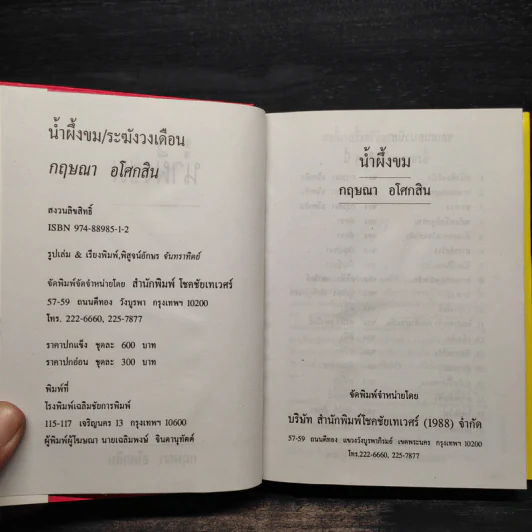 น้ำผึ้งขม/ระฆังวงเดือน
กฤษณา อโศกสิน
สงวนลิขสิทธิ์
ISBN 974-88985-1-2
รูปเล่ม & เรียงพิมพ์,พิสูจน์อักษร จันทราทิตย์
จัดพิมพ์จัดจำหน่ายโดย สำนักพิมพ์ โชคชัยเทเวศร์
57-59 ถนนตีทอง วังบูรพา กรุงเทพฯ 10200
โทร. 222-6660, 225-7877
ราคาปกแข็ง ชุดละ 600 บาท
ราคาปกอ่อน ชุดละ 300 บาท
พิมพ์ที่
โรงพิมพ์เฉลิมชัยการพิมพ์
115-117 เจริญนคร 13 กรุงเทพฯ 10600
ผู้พิมพ์ผู้โฆษณา นายเฉลิมพงษ์ จินดานุทัศน์
น้ำผึ้งขม
กฤษณา อโศกสิน
จัดพิมพ์จำหน่ายโดย
บริษัท สำนักพิมพ์โชคชัยเทเวศร์ (1988) จำกัด
57-59 ถนนตีทอง แขวงวังบูรพาภิรมย์ เขตพระนคร กรุงเทพฯ 10200
โทร.222-6660, 225-7877